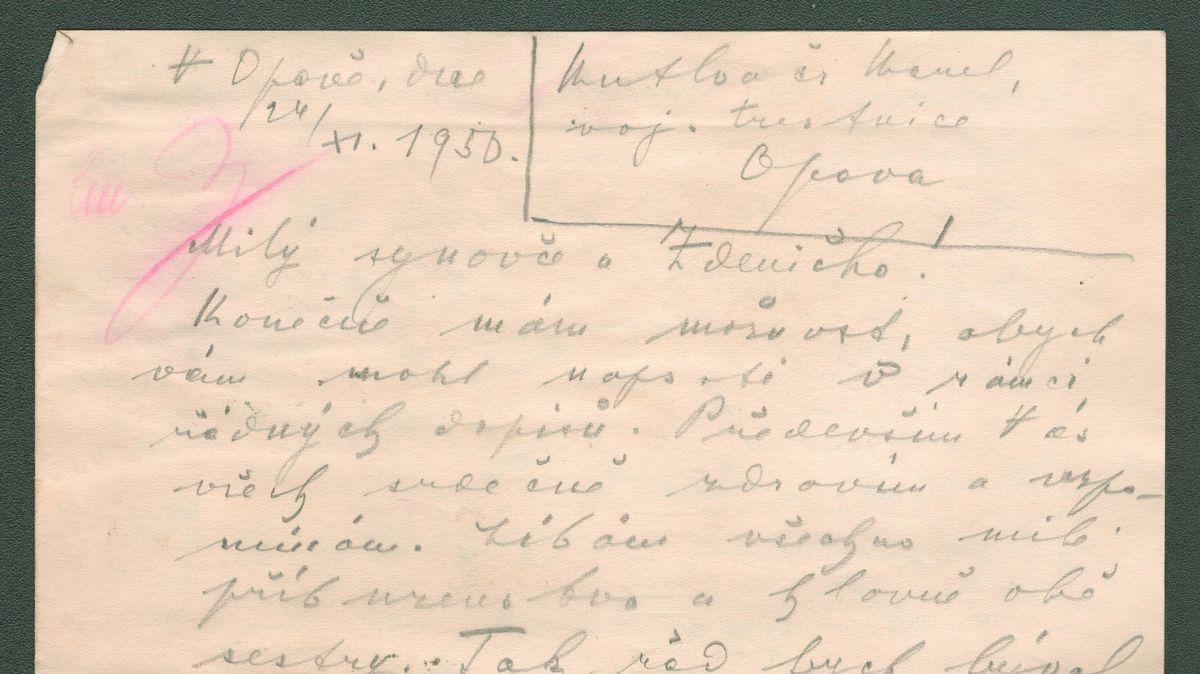 V Opavě, dne
24/
XI. 1950.
Kutlvašr Karel,
voj. trestnice
Opava
Milý synovče a Zdeničko!
Konečně mám možnost, abych
vám mohl napsati v rámci
řádných dopisů. Především Vás
všech srdečně zdravím a vzpo-
mínám. Líbám všechno milé
příbuzenstvo a hlavně obě
sestry. Tak rád bych